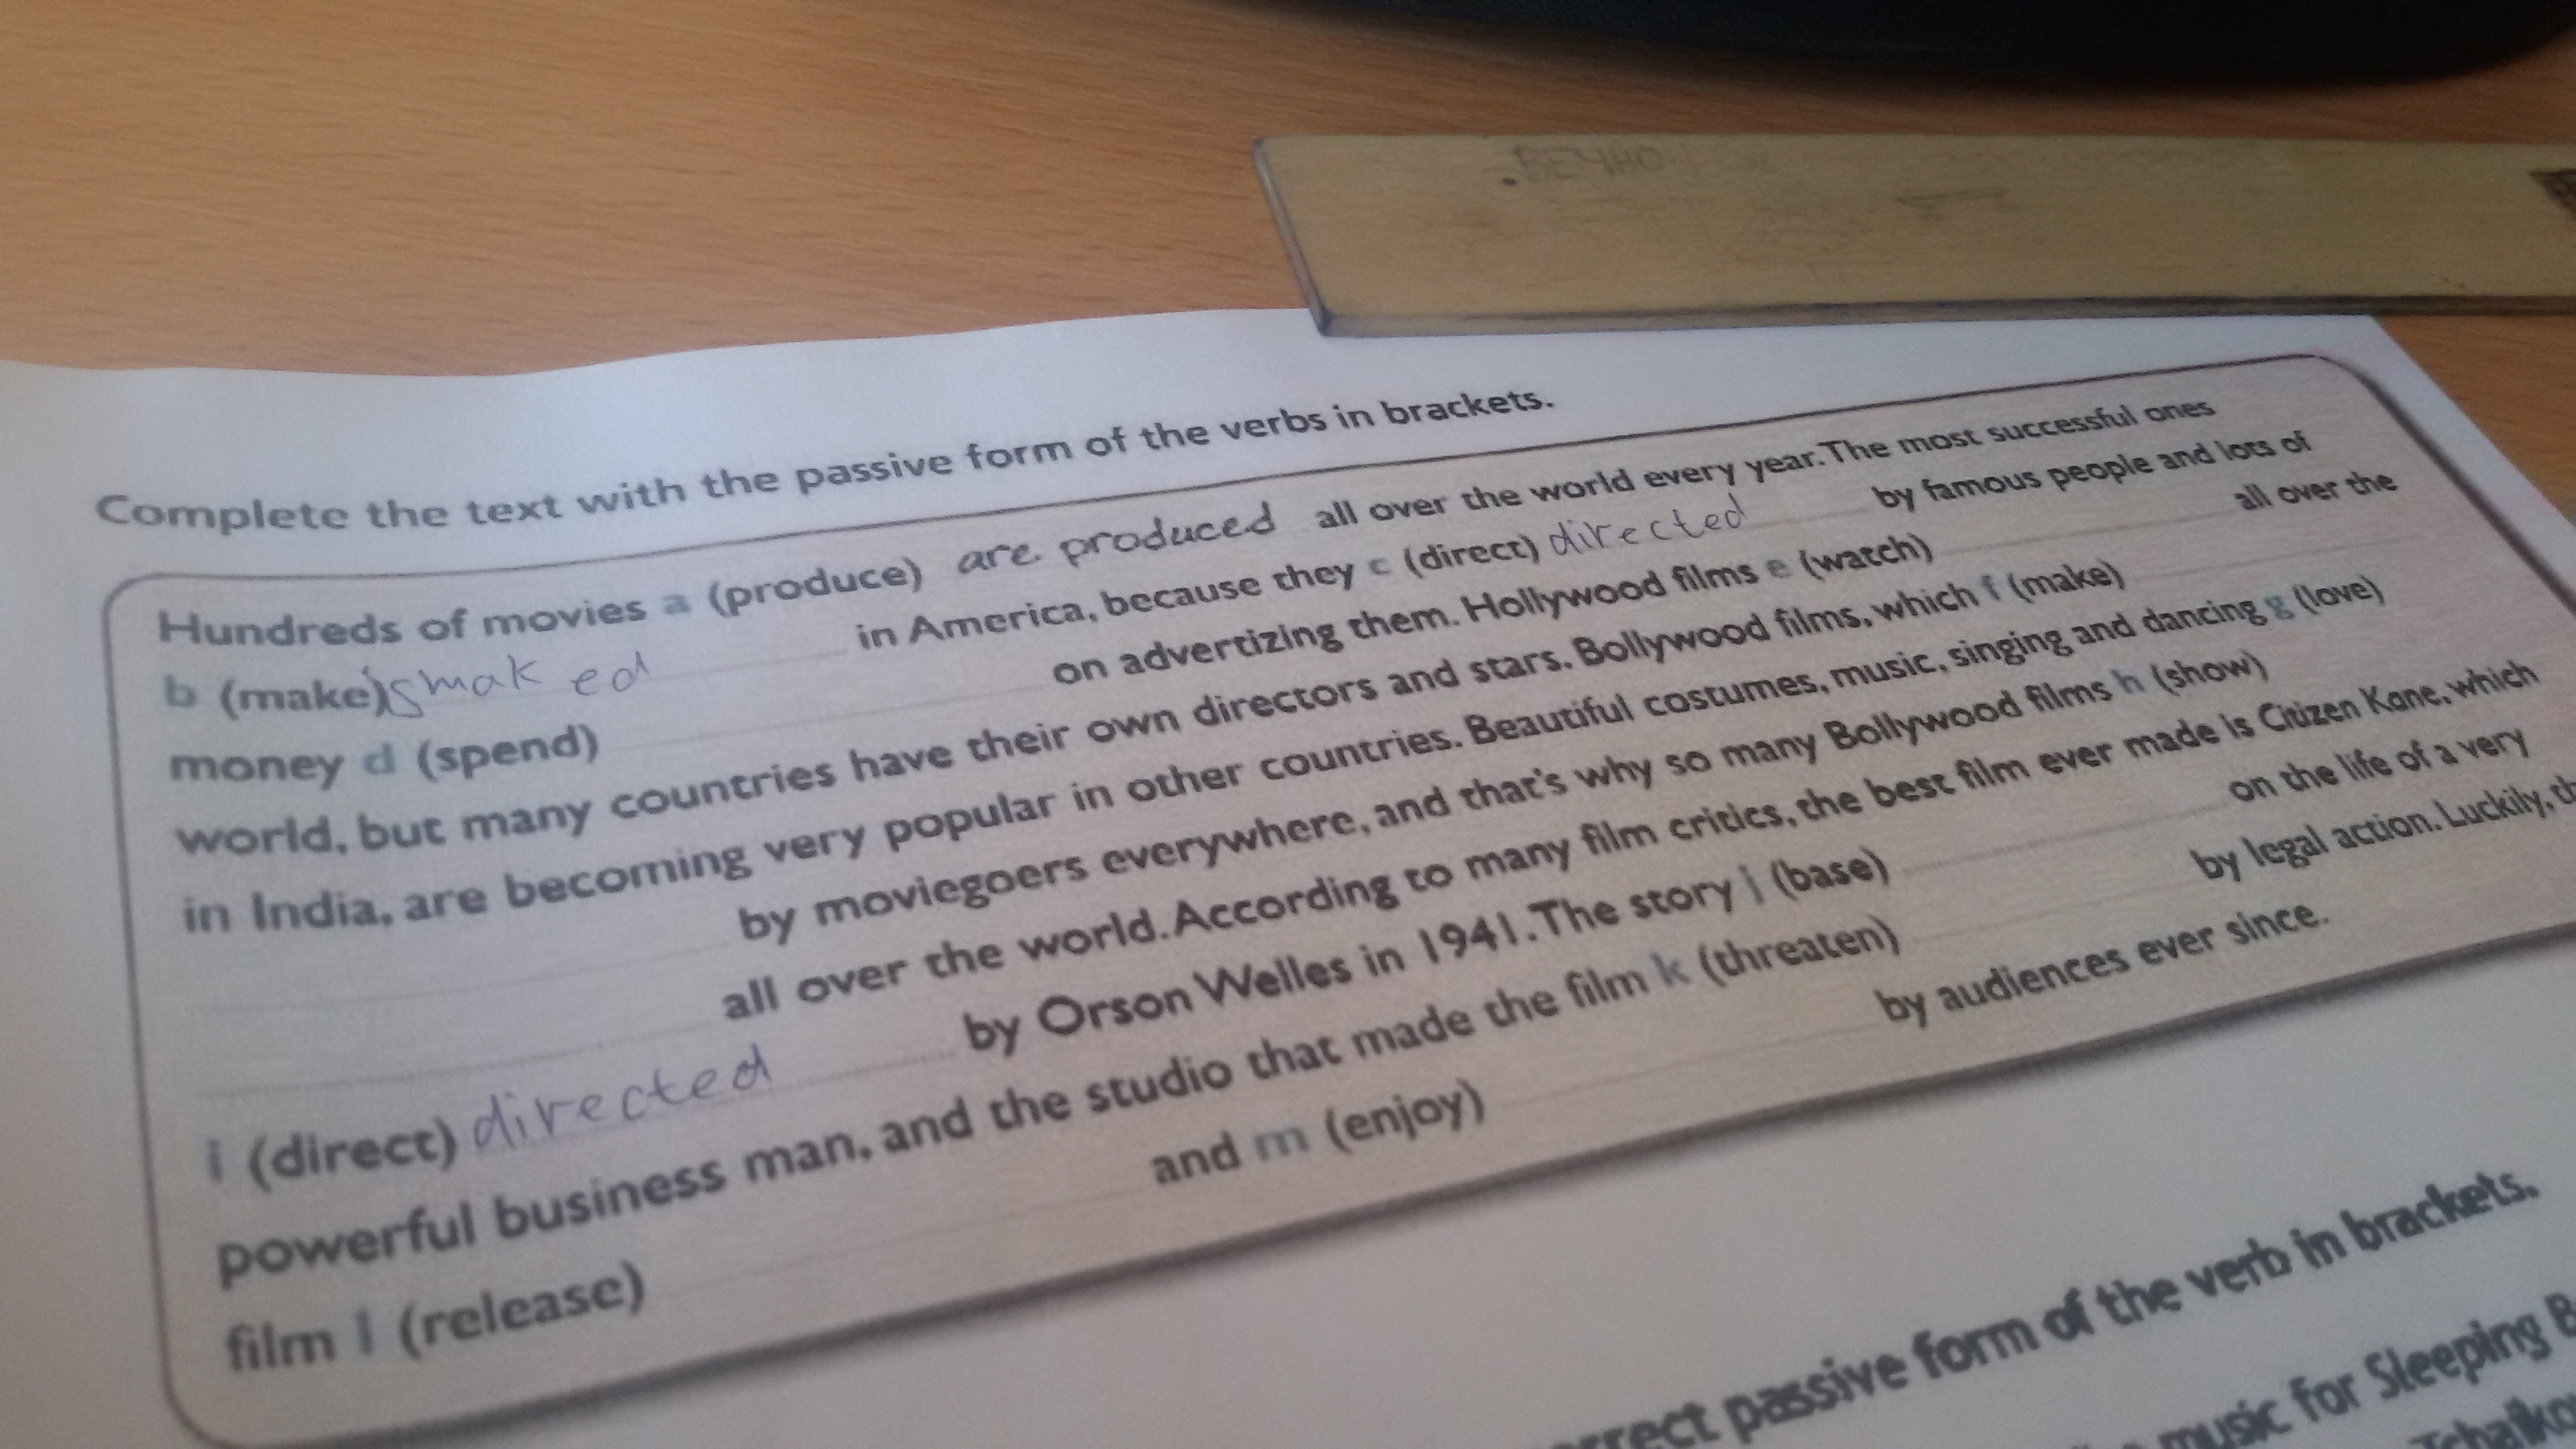 .ВЕЧНО
Complete the text with the passive form of the verbs in brackets.
Hundreds of movies a (produce) are produced all over the world every year. The most successful ones
b (make) is maked in America, because they c (direct) directed by famous people and lots of
money d (spend) on advertizing them. Hollywood films e (watch) all over the
world, but many countries have their own directors and stars. Bollywood films, which f (make)
in India, are becoming very popular in other countries. Beautiful costumes, music, singing and dancing g (love)
by moviegoers everywhere, and that's why so many Bollywood films h (show)
all over the world. According to many film critics, the best film ever made is Citizen Kane, which
i (direct) directed by Orson Welles in 1941. The story j (base) on the life of a very
powerful business man, and the studio that made the film k (threaten) by legal action. Luckily, th
film l (release) and m (enjoy) by audiences ever since.
rrect passive form of the verb in brackets.
music for Sleeping B
Tchaiko